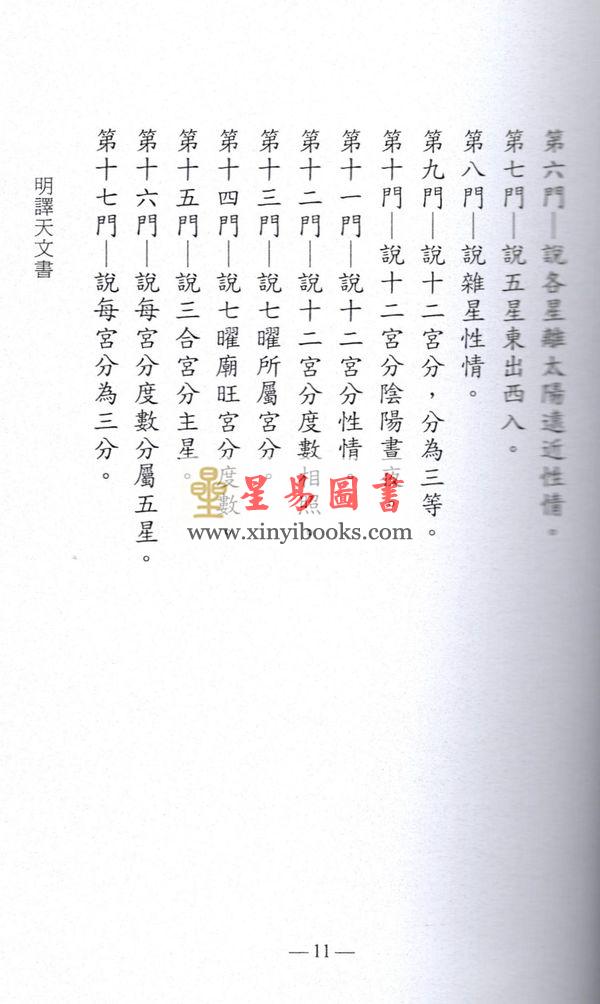 第六門—說各星離太陽遠近性情。
第七門—說五星東出西入。
第八門—說雜星性情。
第九門—說十二宮分，分為三等。
第十門—說十二宮分陰陽晝夜。
第十一門—說十二宮分性情。
第十二門—說十二宮分度數相照
第十三門—說七曜所屬宮分。
第十四門—說七曜廟旺宮分度數
第十五門—說三合宮分主星。
第十六門—說每宮分度數分屬五星。
第十七門—說每宮分為三分。
明譯天文書
星易圖書
www.xinyibooks.com
— 11 —